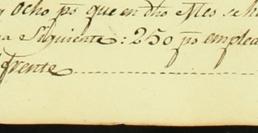 y ocho ps que en dho Mes se h
a Siguiente: 250 ps emplea
frente